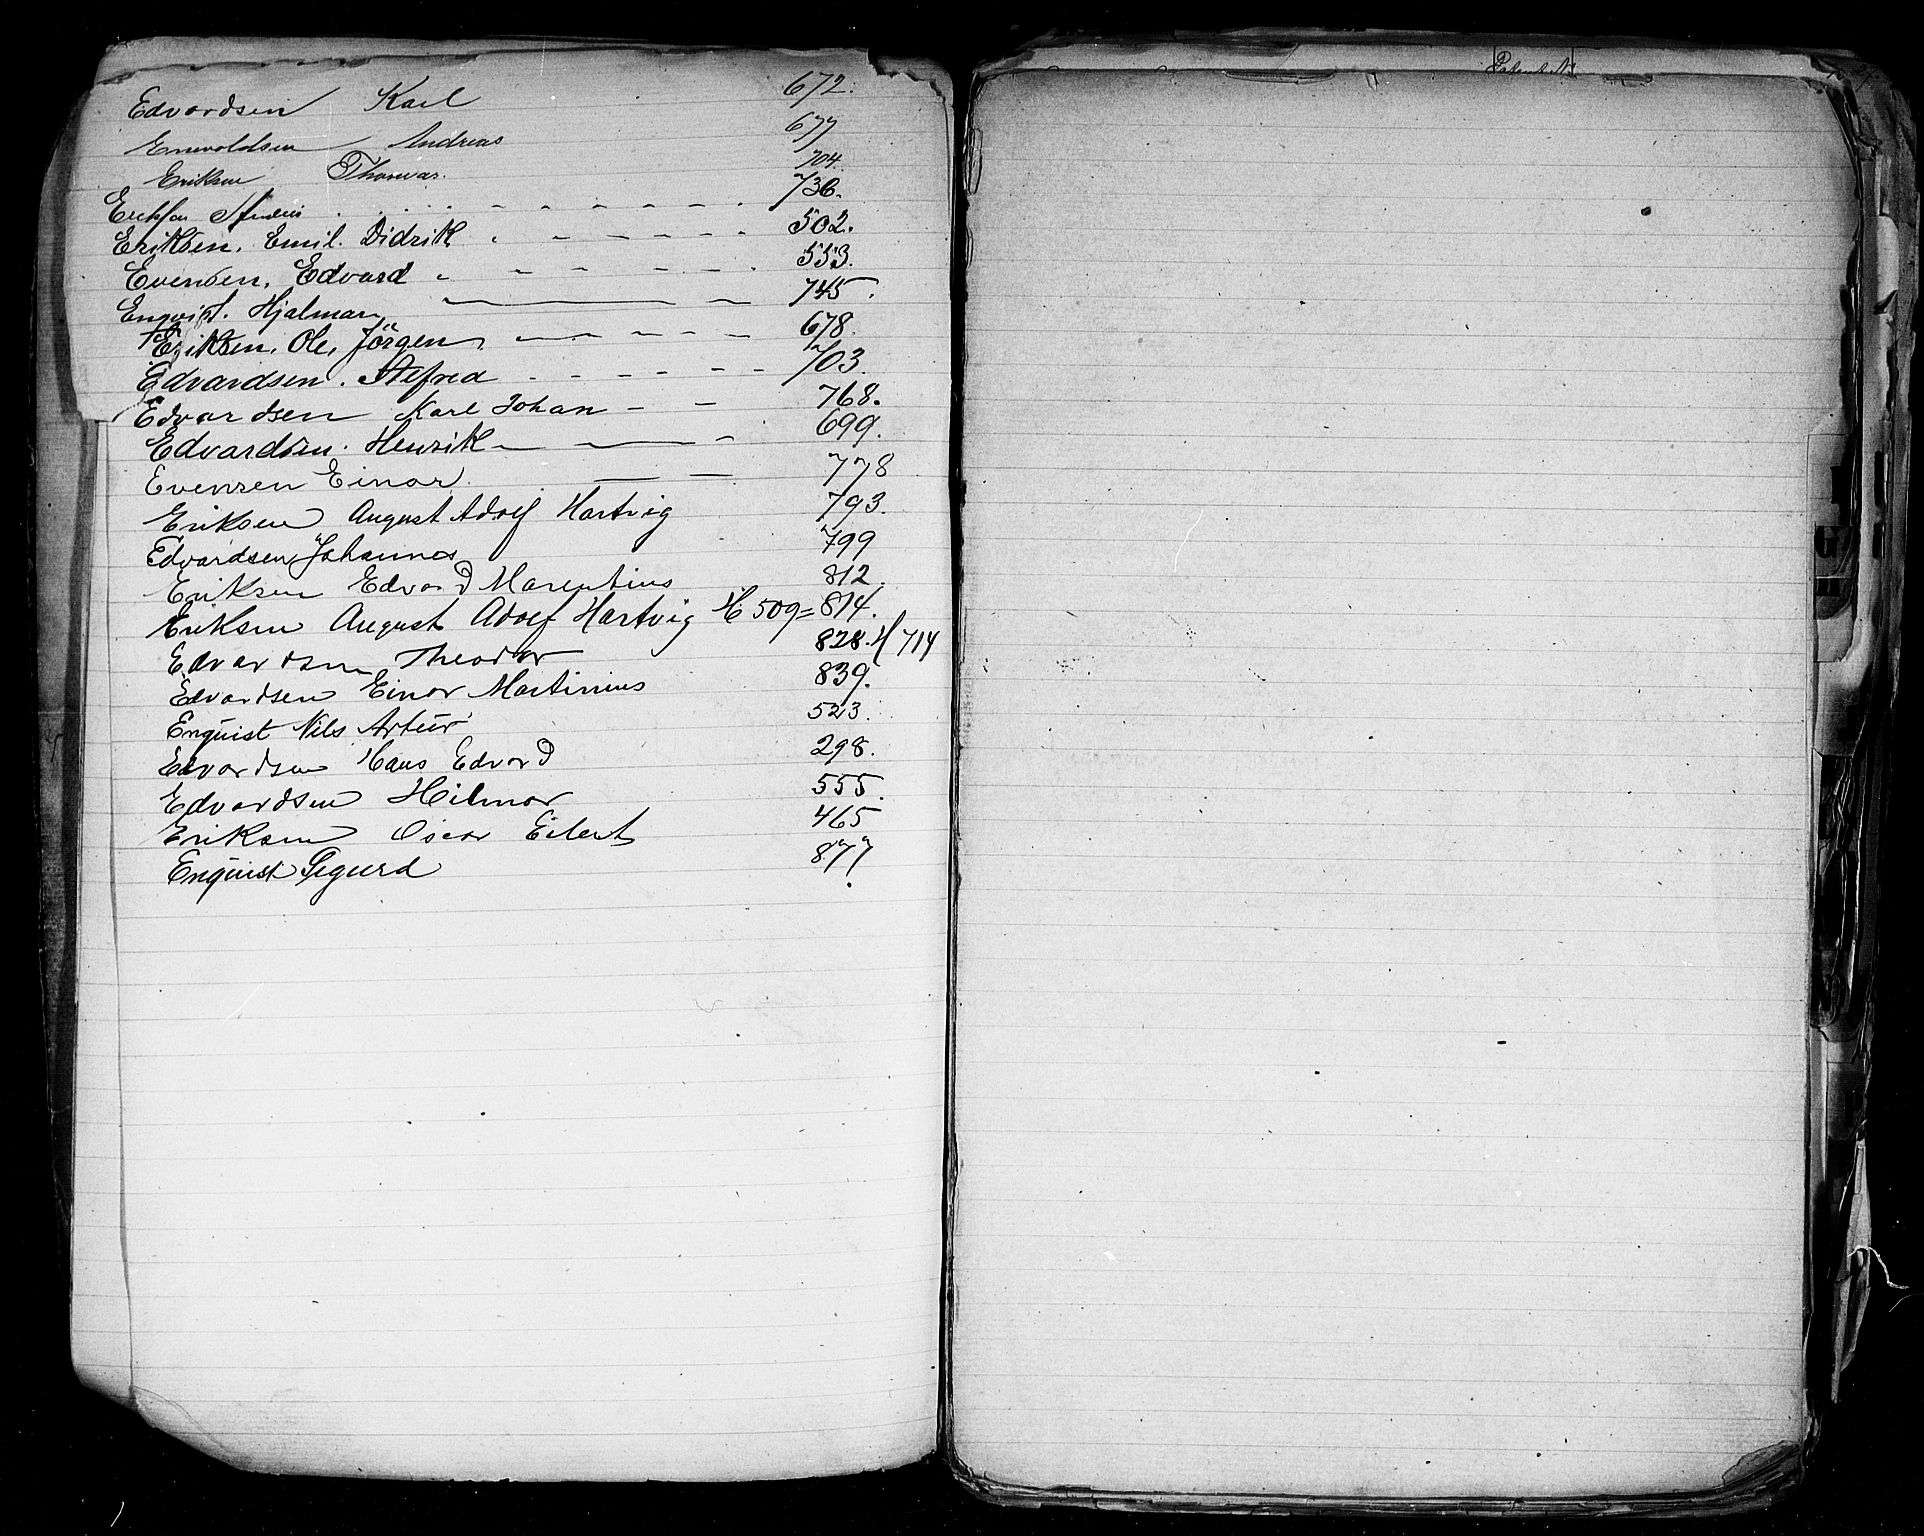 Edvardsen Karl 672.
Enevoldsen Andreas 677
Eriksen Thorvar. 704.
730.
Eriksen. Emil. Didrik 502.
Evensen. Edvard 553.
Enqvist. Hjalmar 745.
Eriksen. Ole, Jörgen 678.
Edvardsen. Alfred 703.
Edvardsen Karl Johan 768.
Edvardsen. Henrik 699.
Evensen Einar 778
Eriksen August Adolf Hartvig 793.
Edvardsen Johannes 799
Eriksen Edvard Marentius 812.
Eriksen August Adolf Hartvig H 509 = 814.
Edvardsen Theodor 828. H 714
Edvardsen Einar Martinius 839.
Enquist Nils Artur 523.
Edvardsen Hans Edvard 298.
Edvardsen Hilmar 555.
Eriksen Oscar Eilert 465
Enquist Sigurd 877.
Patent N
G
H